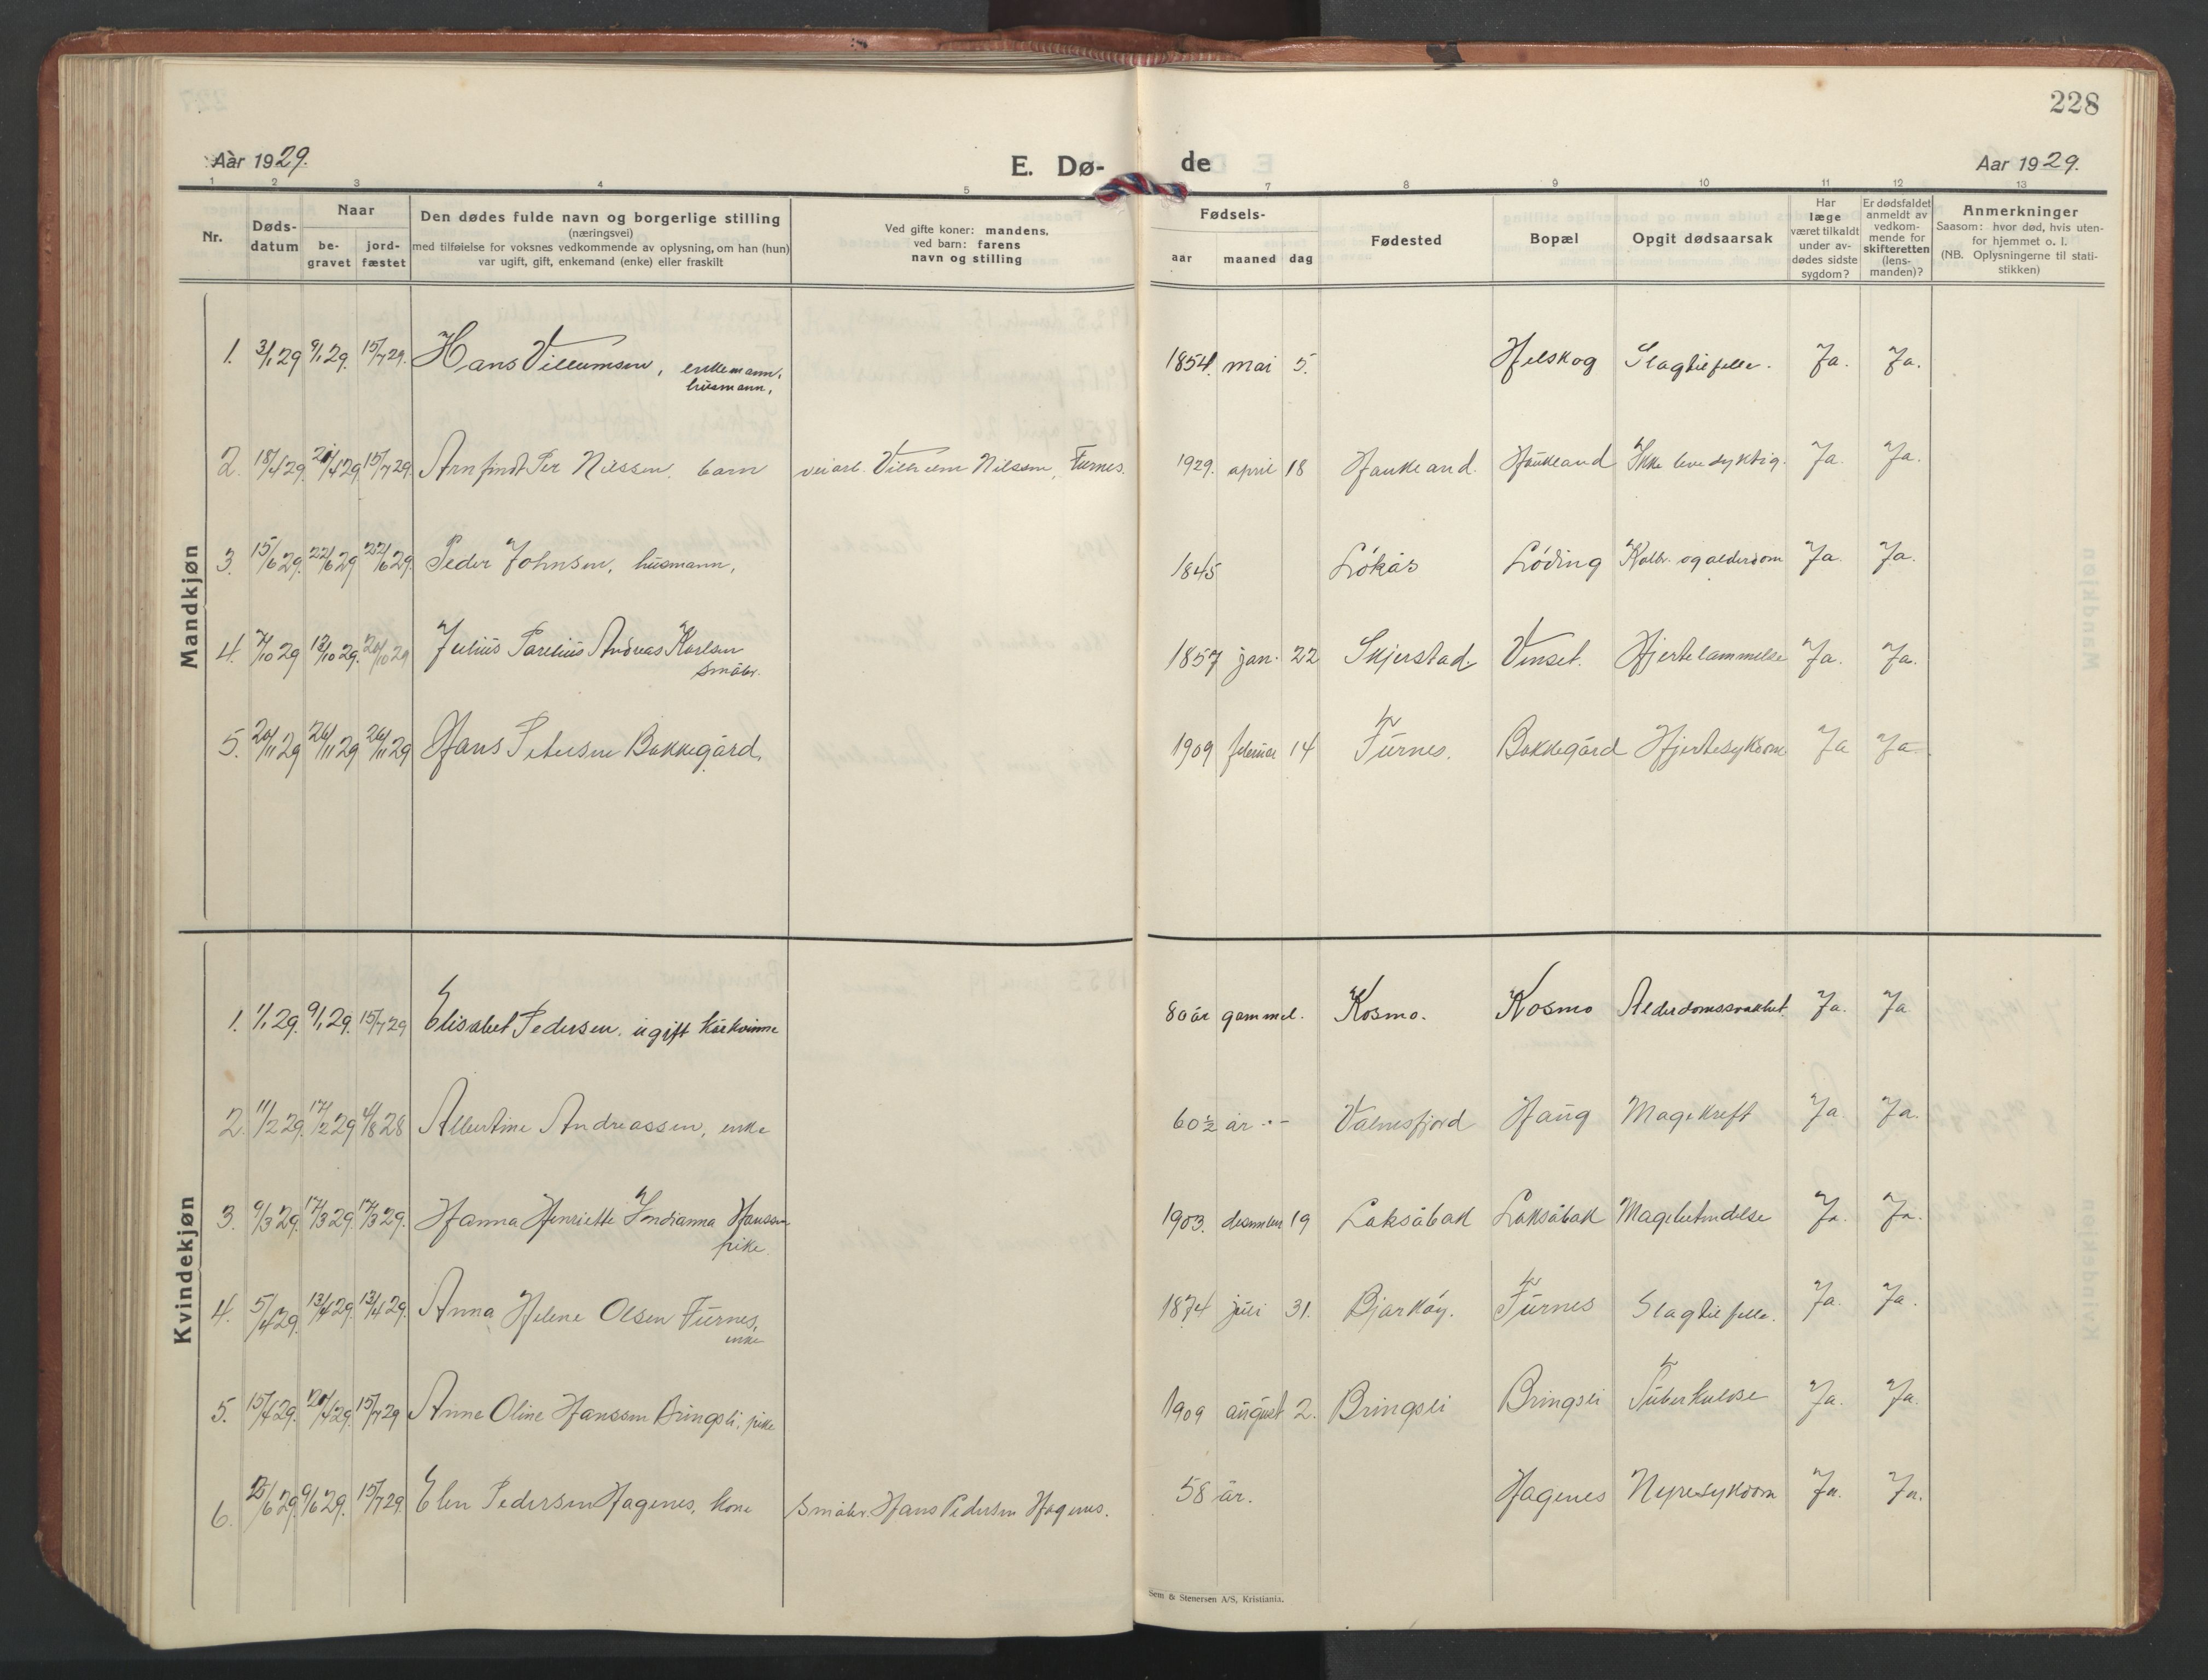 228
Aar 1929.
E. Dø-
de
Aar 1929.
1 2 3 4 5 7 8 9 10 11 12 13
Nr.
Døds-
datum
Naar
be-
gravet
jord-
fæstet
Den dødes fulde navn og borgerlige stilling
(næringsvei)
med tilføielse for voksnes vedkommende av oplysning, om han (hun)
var ugift, gift, enkemand (enke) eller fraskilt
Ved gifte koner: mandens,
ved barn: farens
navn og stilling
Fødsels-
aar maaned dag
Fødested
Bopæl
Opgit dødsaarsak
Har
læge
været tilkaldt
under av-
dødes sidste
sygdom?
Er dødsfaldet
anmeldt av
vedkom-
mende for
skifteretten
(lens-
manden)?
Anmerkninger
Saasom: hvor død, hvis uten-
for hjemmet o. l.
(NB. Oplysningerne til stati-
stikken)
Mandkjøn
1. 3/1 29 9/1 29. 15/7 29. Hans Villumsen, enkemann, 1854. mai 5. Helskog Slagtilfelle. Ja. Ja.
husmann,
2. 18/4 29. 20/4 29 15/7 29. Arnfindt Per Nilssen, barn veiarb. Vilhelm Nilsen, Furnes. 1929. april 18 Haukeland. Haukeland Ikke levedyktig. Ja. Ja.
3. 15/6 29. 22/6 29 22/6 29. Peder Johnsen, husmann, 1845 Løkås Løding Kolbr. og alderdom Ja. Ja.
4. 7/10 29 13/10 29. 20/10 29 Julius Parelius Andreas Karlsen 1857 jan. 22 Skjerstad. Venset. Hjertelammelse Ja. Ja.
småbr.
5. 20/11 29 26/11 29 26/11 29 Hans Petersen Bakkegård, 1909 februar 14 Furnes. Bakkegård Hjertesykdom Ja Ja
Kvindekjøn
1. 1/1 29. 9/1 29. 15/7 29 Elisabet Pedersen, ugift kårkvinne 80 år gammel. Kosmo. Kosmo Alderdomssvakhet. Ja. Ja
2. 11/2 29. 17/2 29 4/8 28 Albertine Andreassen, enke 60 1/2 år -"- Valnesfjord Haug Magekreft Ja Ja.
3. 9/3 29. 17/3 29. 17/3 29. Hanna Henriette Indianna Hanssen 1903. desember 19 Laksåbak Laksåbak Magebetendelse Ja. Ja.
pike.
4. 5/4 29. 13/4 29. 13/4 29. Anna Helene Olsen Furnes, 1874 juli 31. Bjarkøy. Furnes Slagtilfelle. Ja. Ja.
enke
5. 15/4 29. 20/4 29. 15/7 29 Anne Oline Hanssen Bringsli, pike 1909 august 2. Bringsli Bringsli Tuberkulose Ja. Ja.
6. /6 29. 9/6 29. 15/7 29. Elen Pedersen Hagenes, kone Småbr. Hans Pedersen Hagenes. 58 år. Hagenes Nyresykdom Ja. Ja.
Sem & Stenersen A/S, Kristiania.